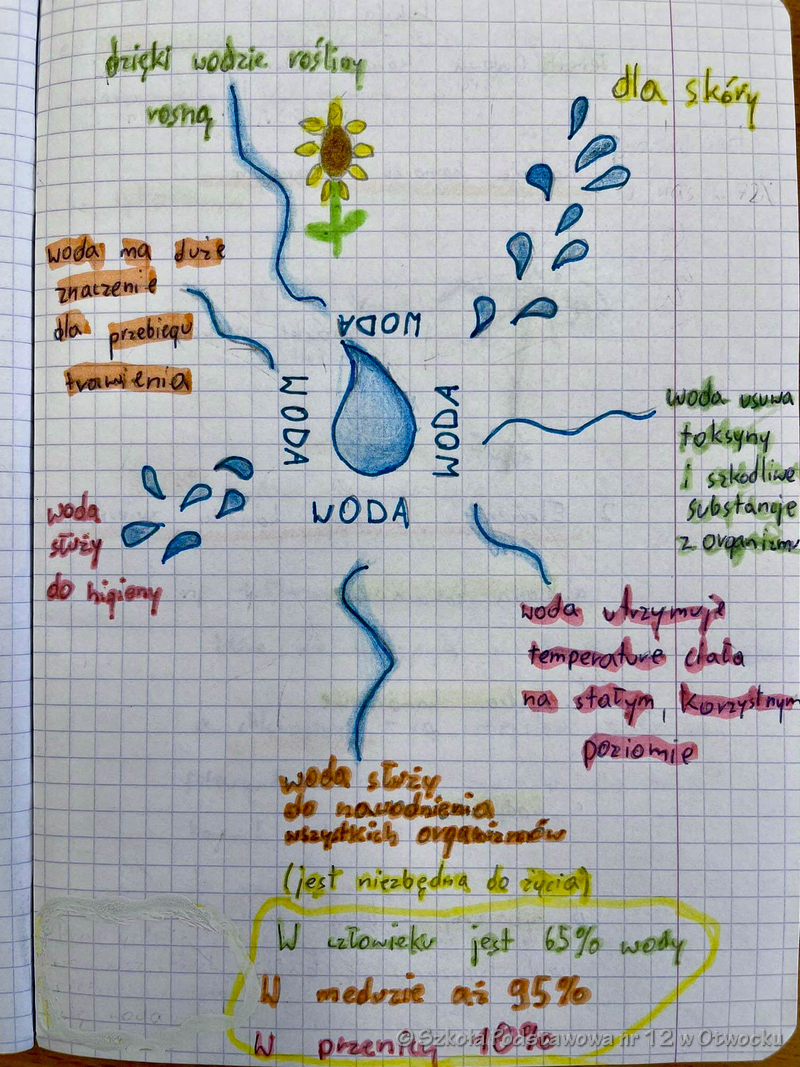 dzięki wodzie rośliny
rosną
dla skóry
woda ma duże
znaczenie
dla przebiegu
trawienia
WODA
WODA
WODA
WODA
woda usuwa
toksyny
i szkodliwe
substancje
z organizmu
woda
służy
do higieny
woda utrzymuje
temperature ciała
na stałym, korzystnym
poziomie
woda służy
do nawodnienia
wszystkich organizmów
(jest niezbędna do życia)
W człowieku jest 65% wody
W meduzie aż 95%
W przenicy 10%
© Szkoła Podstawowa nr 12 w Otwocku